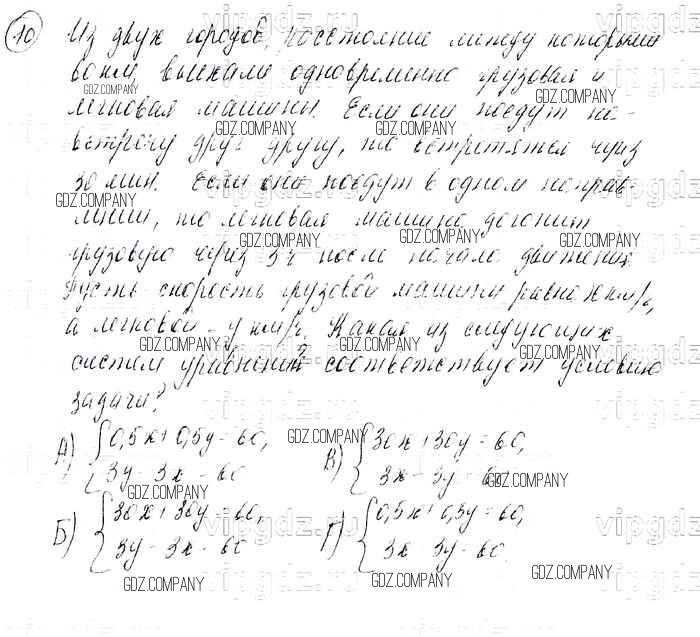 10 Из двух городов, расстояние между которыми
60 км, выехали одновременно грузовая и
GDZ.COMPANY GDZ.COMPANY
легковая машины. Если они поедут на-
GDZ.COMPANY GDZ.COMPANY
встречу друг другу, то встретятся через
30 мин. Если они поедут в одном направ-
GDZ.COMPANY GDZ.COMPANY
лении, то легковая машина догонит
GDZ.COMPANY GDZ.COMPANY GDZ.COMPANY
грузовую через 3 ч после начала движения.
Пусть скорость грузовой машины равна x км/ч,
а легковой - y км/ч. Какая из следующих
GDZ.COMPANY GDZ.COMPANY GDZ.COMPANY
систем уравнений соответствует условию
задачи?
А) 0,5x + 0,5y = 60, GDZ.COMPANY В) 30x + 30y = 60,
3y - 3x = 60 3x - 3y = 60
GDZ.COMPANY GDZ.COMPANY
Б) 30x + 30y = 60, Г) 0,5x + 0,5y = 60,
3y - 3x = 60 3x - 3y = 60.
GDZ.COMPANY GDZ.COMPANY GDZ.COMPANY
vipgdz.ru